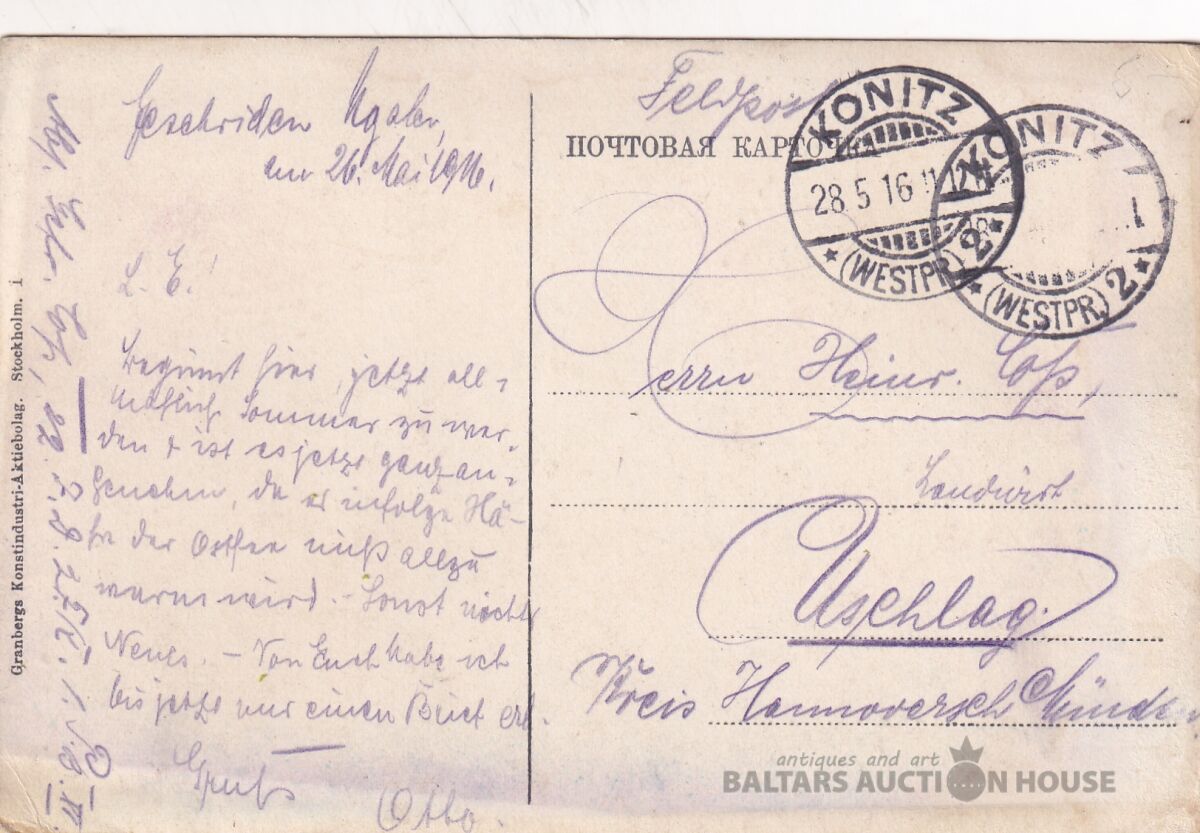 Geschrieben
am 26. Mai 1916.
L. E.!
Beginnt hier jetzt all-
mählich Sommer zu wer-
den & ist es jetzt ganz an-
genehm, da er infolge Nä-
he der Ostsee nicht allzu
warm wird. – Sonst nichts
Neues. – Von Euch habe ich
bis jetzt nur einen Brief erh.
Gruß
Otto.
Granbergs Konstindustri-Aktiebolag. Stockholm. i
Feldpost
ПОЧТОВАЯ КАРТОЧКА
KONITZ
28.5.16.11-12
* (WESTPR.) 2 *
KONITZ
* (WESTPR.) 2 *
Herrn Heinr.
Landwirt
Uschlag.
Kreis Hannoversch Münden
antiques and art
BALTARS AUCTION HOUSE